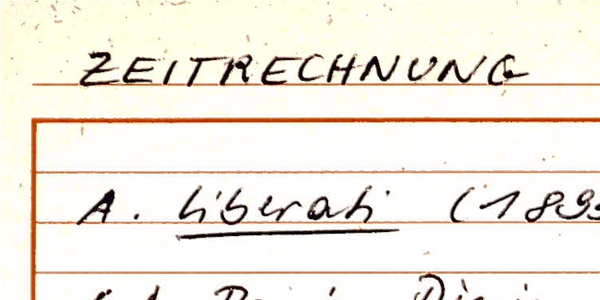 ZEITRECHNUNG
A. Liberati (1893